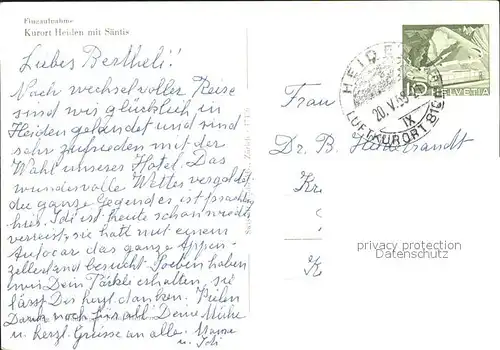 Flugaufnahme
Kurort Heiden mit Säntis
Liebes Bertheli!
Nach wechselvoller Reise
sind wir glücklich in
Heiden gelandet und sind
sehr zufrieden mit der
Wahl unseres Hotel. Das
wundervolle Wetter vergoldet
die ganze Gegend es ist prachtig
hier. Idi ist heute schon wieder
verreist, sie hatt mit einem
Autocar das ganze Appen-
zellerland besucht. Soeben haben
wir Dein Päckli erhalten, sie
lässt Dir herzl. danken. Vielen
Dank noch für all Deine Mühe
u. herzl. Grüsse an alle. Mama
u. Idi
Zürich - 7718
HELVETIA
HEIDEN
20.V.
IX
LUFTKURORT 810
Frau
Dr. B. Hildebrandt
privacy protection
Datenschutz